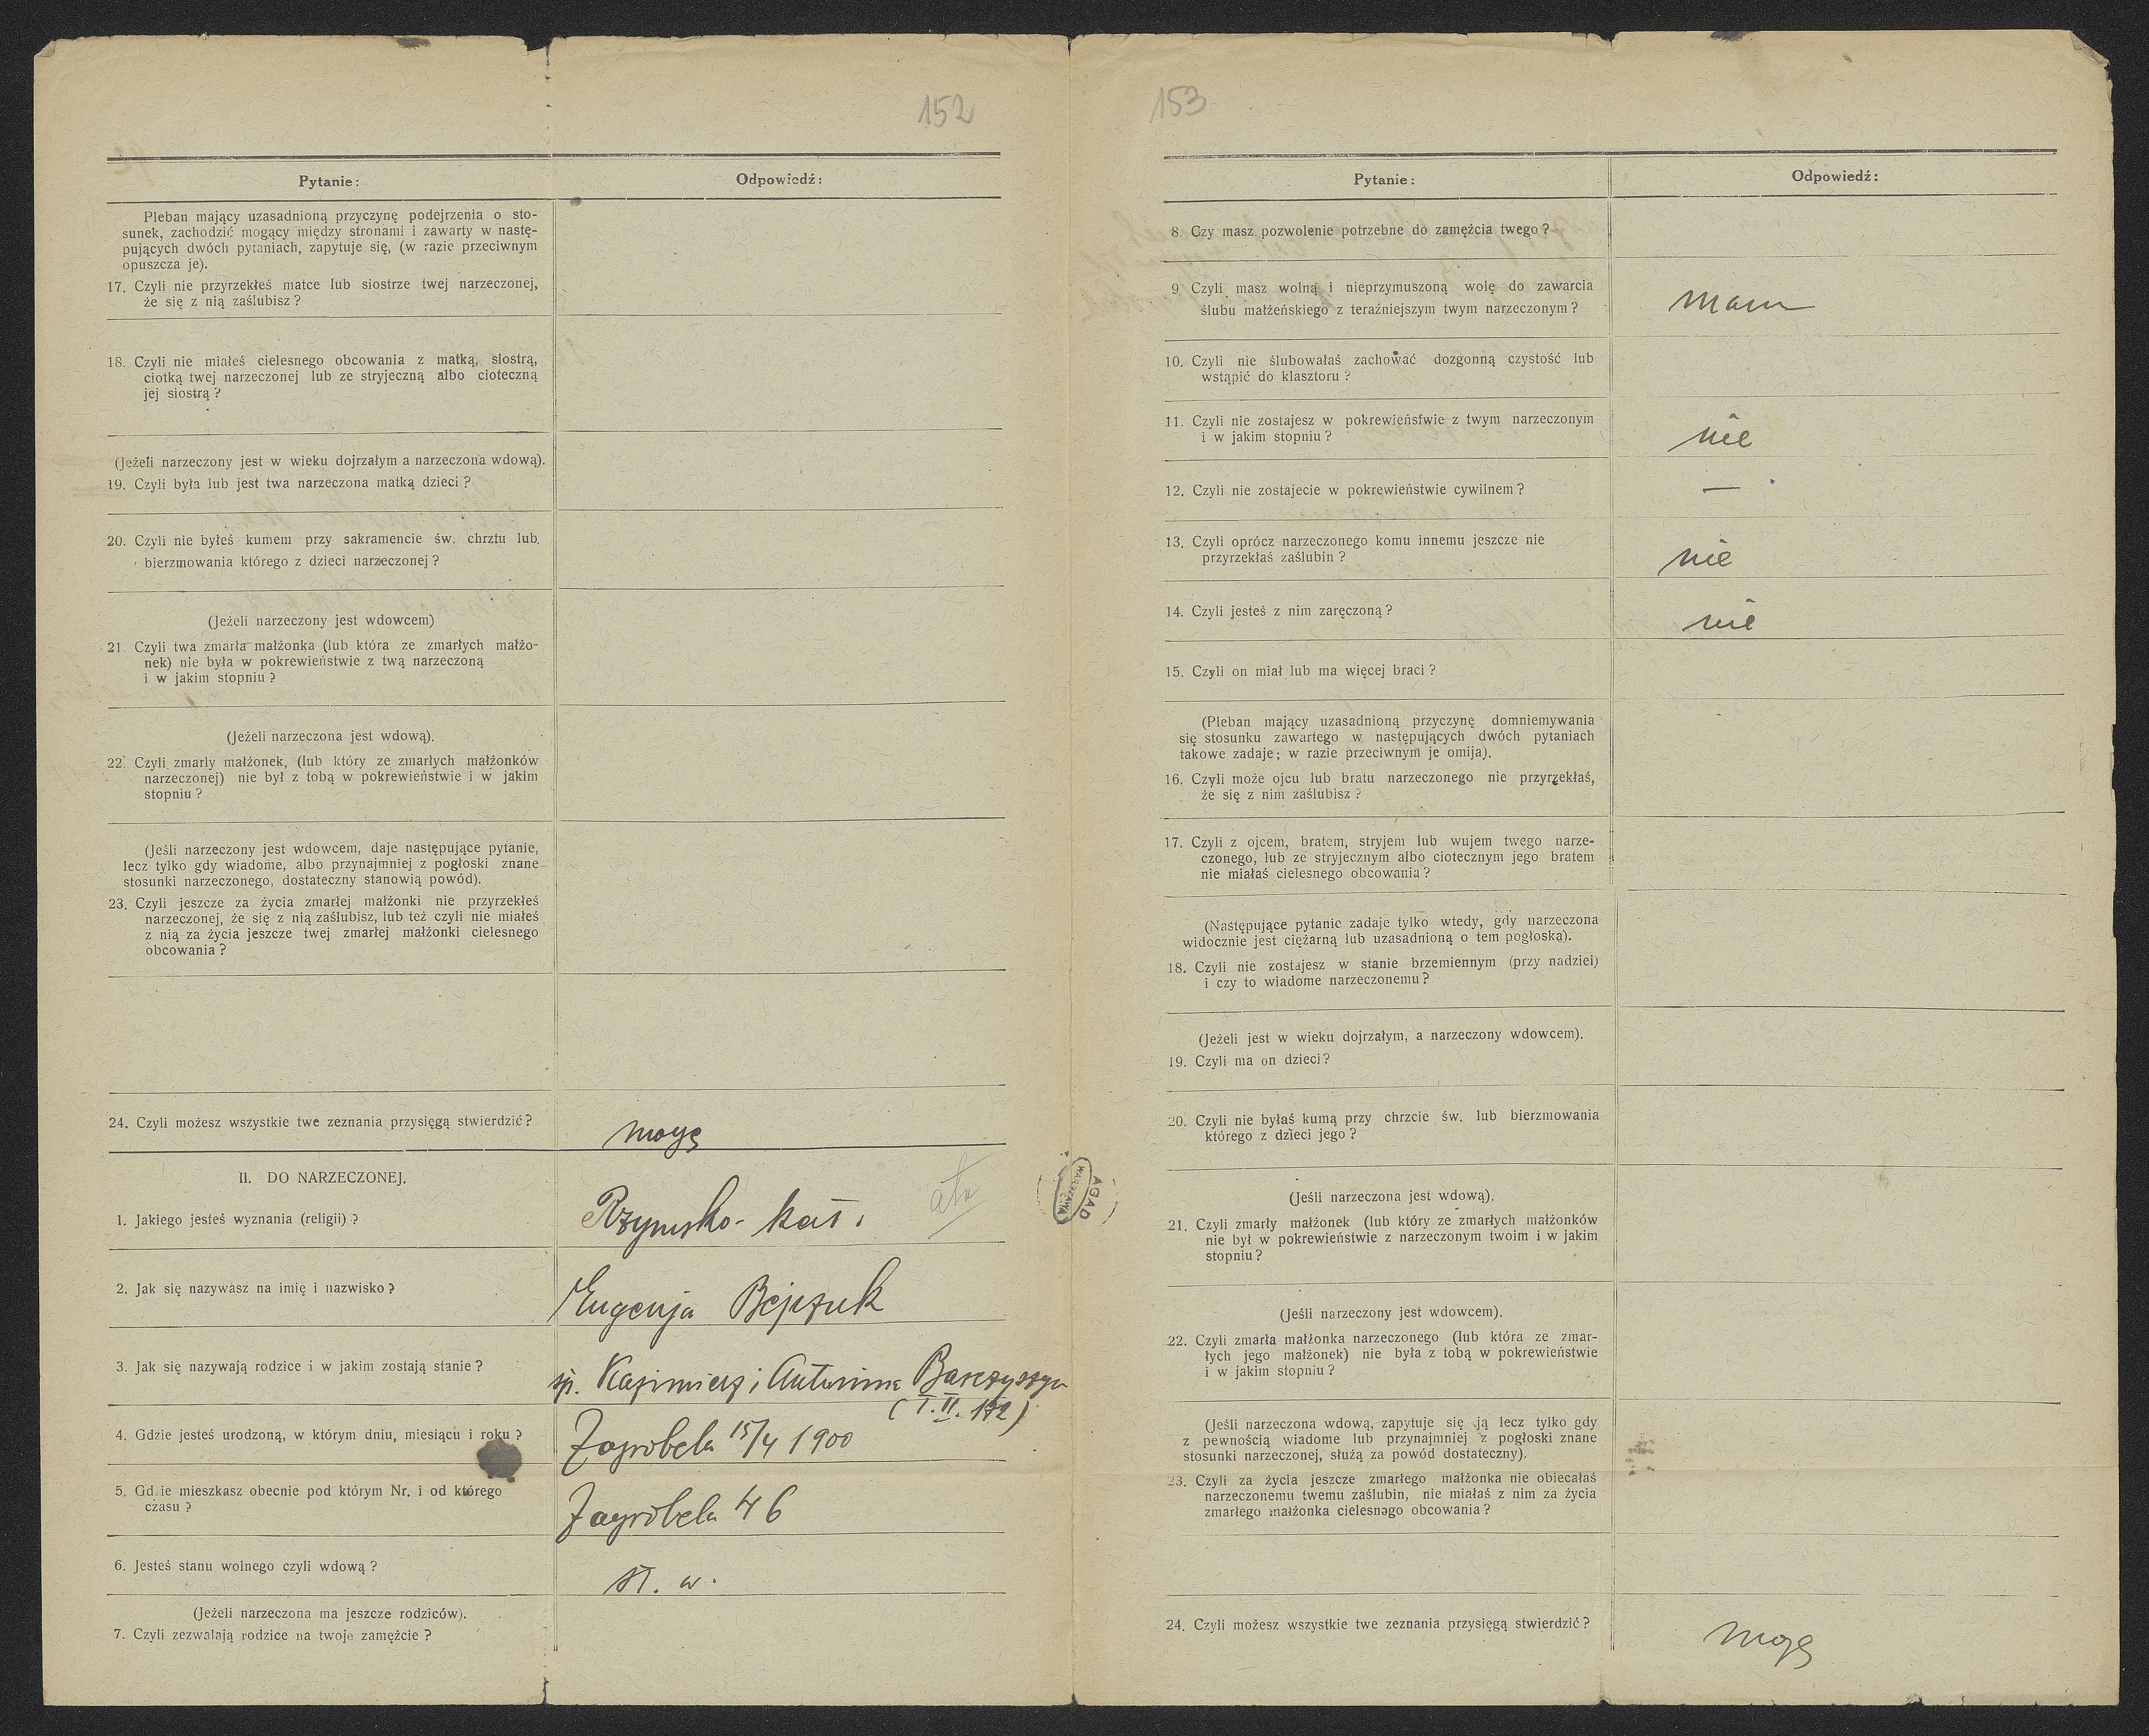 152
Pytanie:
Odpowiedź:
Pleban mający uzasadnioną przyczynę podejrzenia o sto-
sunek, zachodzić mogący między stronami i zawarty w nastę-
pujących dwóch pytaniach, zapytuje się, (w razie przeciwnym
opuszcza je).
17. Czyli nie przyrzekłeś matce lub siostrze twej narzeczonej,
że się z nią zaślubisz?
18. Czyli nie miałeś cielesnego obcowania z matką, siostrą,
ciotką twej narzeczonej lub ze stryjeczną albo cioteczną
jej siostrą?
(Jeżeli narzeczony jest w wieku dojrzałym a narzeczona wdową).
19. Czyli była lub jest twa narzeczona matką dzieci?
20. Czyli nie byłeś kumem przy sakramencie św. chrztu lub
bierzmowania którego z dzieci narzeczonej?
(Jeżeli narzeczony jest wdowcem)
21. Czyli twa zmarła małżonka (lub która ze zmarłych małżo-
nek) nie była w pokrewieństwie z twą narzeczoną
i w jakim stopniu?
(Jeżeli narzeczona jest wdową).
22. Czyli zmarly małżonek, (lub który ze zmarłych małżonków
narzeczonej) nie był z tobą w pokrewieństwie i w jakim
stopniu?
(Jeśli narzeczony jest wdowcem, daje następujące pytanie,
lecz tylko gdy wiadome, albo przynajmniej z pogłoski znane
stosunki narzeczonego, dostateczny stanowią powód).
23. Czyli jeszcze za życia zmarłej małżonki nie przyrzekłeś
narzeczonej, że się z nią zaślubisz, lub też czyli nie miałeś
z nią za życia jeszcze twej zmarłej małżonki cielesnego
obcowania?
24. Czyli możesz wszystkie twe zeznania przysięgą stwierdzić?
mogę
II. DO NARZECZONEJ.
1. Jakiego jesteś wyznania (religii)?
Rzymsko-kat.
2. Jak się nazywasz na imię i nazwisko?
Eugenja Bejczuk
3. Jak się nazywają rodzice i w jakim zostają stanie?
śp. Kazimierz i Antonina Barczyszyn
(T. II. 172)
4. Gdzie jesteś urodzoną, w którym dniu, miesiącu i roku?
Zagrobela 15/4 1900
5. Gdzie mieszkasz obecnie pod którym Nr. i od którego
czasu?
Zagrobela 46
6. Jesteś stanu wolnego czyli wdową?
st. w.
(Jeżeli narzeczona ma jeszcze rodziców).
7. Czyli zezwalają rodzice na twoje zamężcie?
AGAD
WARSZAWA
153
Pytanie:
Odpowiedź:
8. Czy masz pozwolenie potrzebne do zamężcia twego?
9. Czyli masz wolną i nieprzymuszoną wolę do zawarcia
ślubu małżeńskiego z teraźniejszym twym narzeczonym?
mam
10. Czyli nie ślubowałaś zachować dozgonną czystość lub
wstąpić do klasztoru?
11. Czyli nie zostajesz w pokrewieństwie z twym narzeczonym
i w jakim stopniu?
nie
12. Czyli nie zostajecie w pokrewieństwie cywilnem?
—
13. Czyli oprócz narzeczonego komu innemu jeszcze nie
przyrzekłaś zaślubin?
nie
14. Czyli jesteś z nim zaręczoną?
nie
15. Czyli on miał lub ma więcej braci?
(Pleban mający uzasadnioną przyczynę domniemywania
się stosunku zawartego w następujących dwóch pytaniach
takowe zadaje; w razie przeciwnym je omija).
16. Czyli może ojcu lub bratu narzeczonego nie przyrzekłaś,
że się z nim zaślubisz?
17. Czyli z ojcem, bratem, stryjem lub wujem twego narze-
czonego, lub ze stryjecznym albo ciotecznym jego bratem
nie miałaś cielesnego obcowania?
(Następujące pytanie zadaje tylko wtedy, gdy narzeczona
widocznie jest ciężarną lub uzasadnioną o tem pogłoską).
18. Czyli nie zostajesz w stanie brzemiennym (przy nadziei)
i czy to wiadome narzeczonemu?
(Jeżeli jest w wieku dojrzałym, a narzeczony wdowcem).
19. Czyli ma on dzieci?
20. Czyli nie byłaś kumą przy chrzcie św. lub bierzmowania
którego z dzieci jego?
(Jeśli narzeczona jest wdową).
21. Czyli zmarły małżonek (lub który ze zmarłych małżonków
nie był w pokrewieństwie z narzeczonym twoim i w jakim
stopniu?
(Jeśli narzeczony jest wdowcem).
22. Czyli zmarła małżonka narzeczonego (lub która ze zmar-
łych jego małżonek) nie była z tobą w pokrewieństwie
i w jakim stopniu?
(Jeśli narzeczona wdową, zapytuje się ją lecz tylko gdy
z pewnością wiadome lub przynajmniej z pogłoski znane
stosunki narzeczonej, służą za powód dostateczny).
23. Czyli za życia jeszcze zmarłego małżonka nie obiecałaś
narzeczonemu twemu zaślubin, nie miałaś z nim za życia
zmarłego małżonka cielesnego obcowania?
24. Czyli możesz wszystkie twe zeznania przysięgą stwierdzić?
mogę